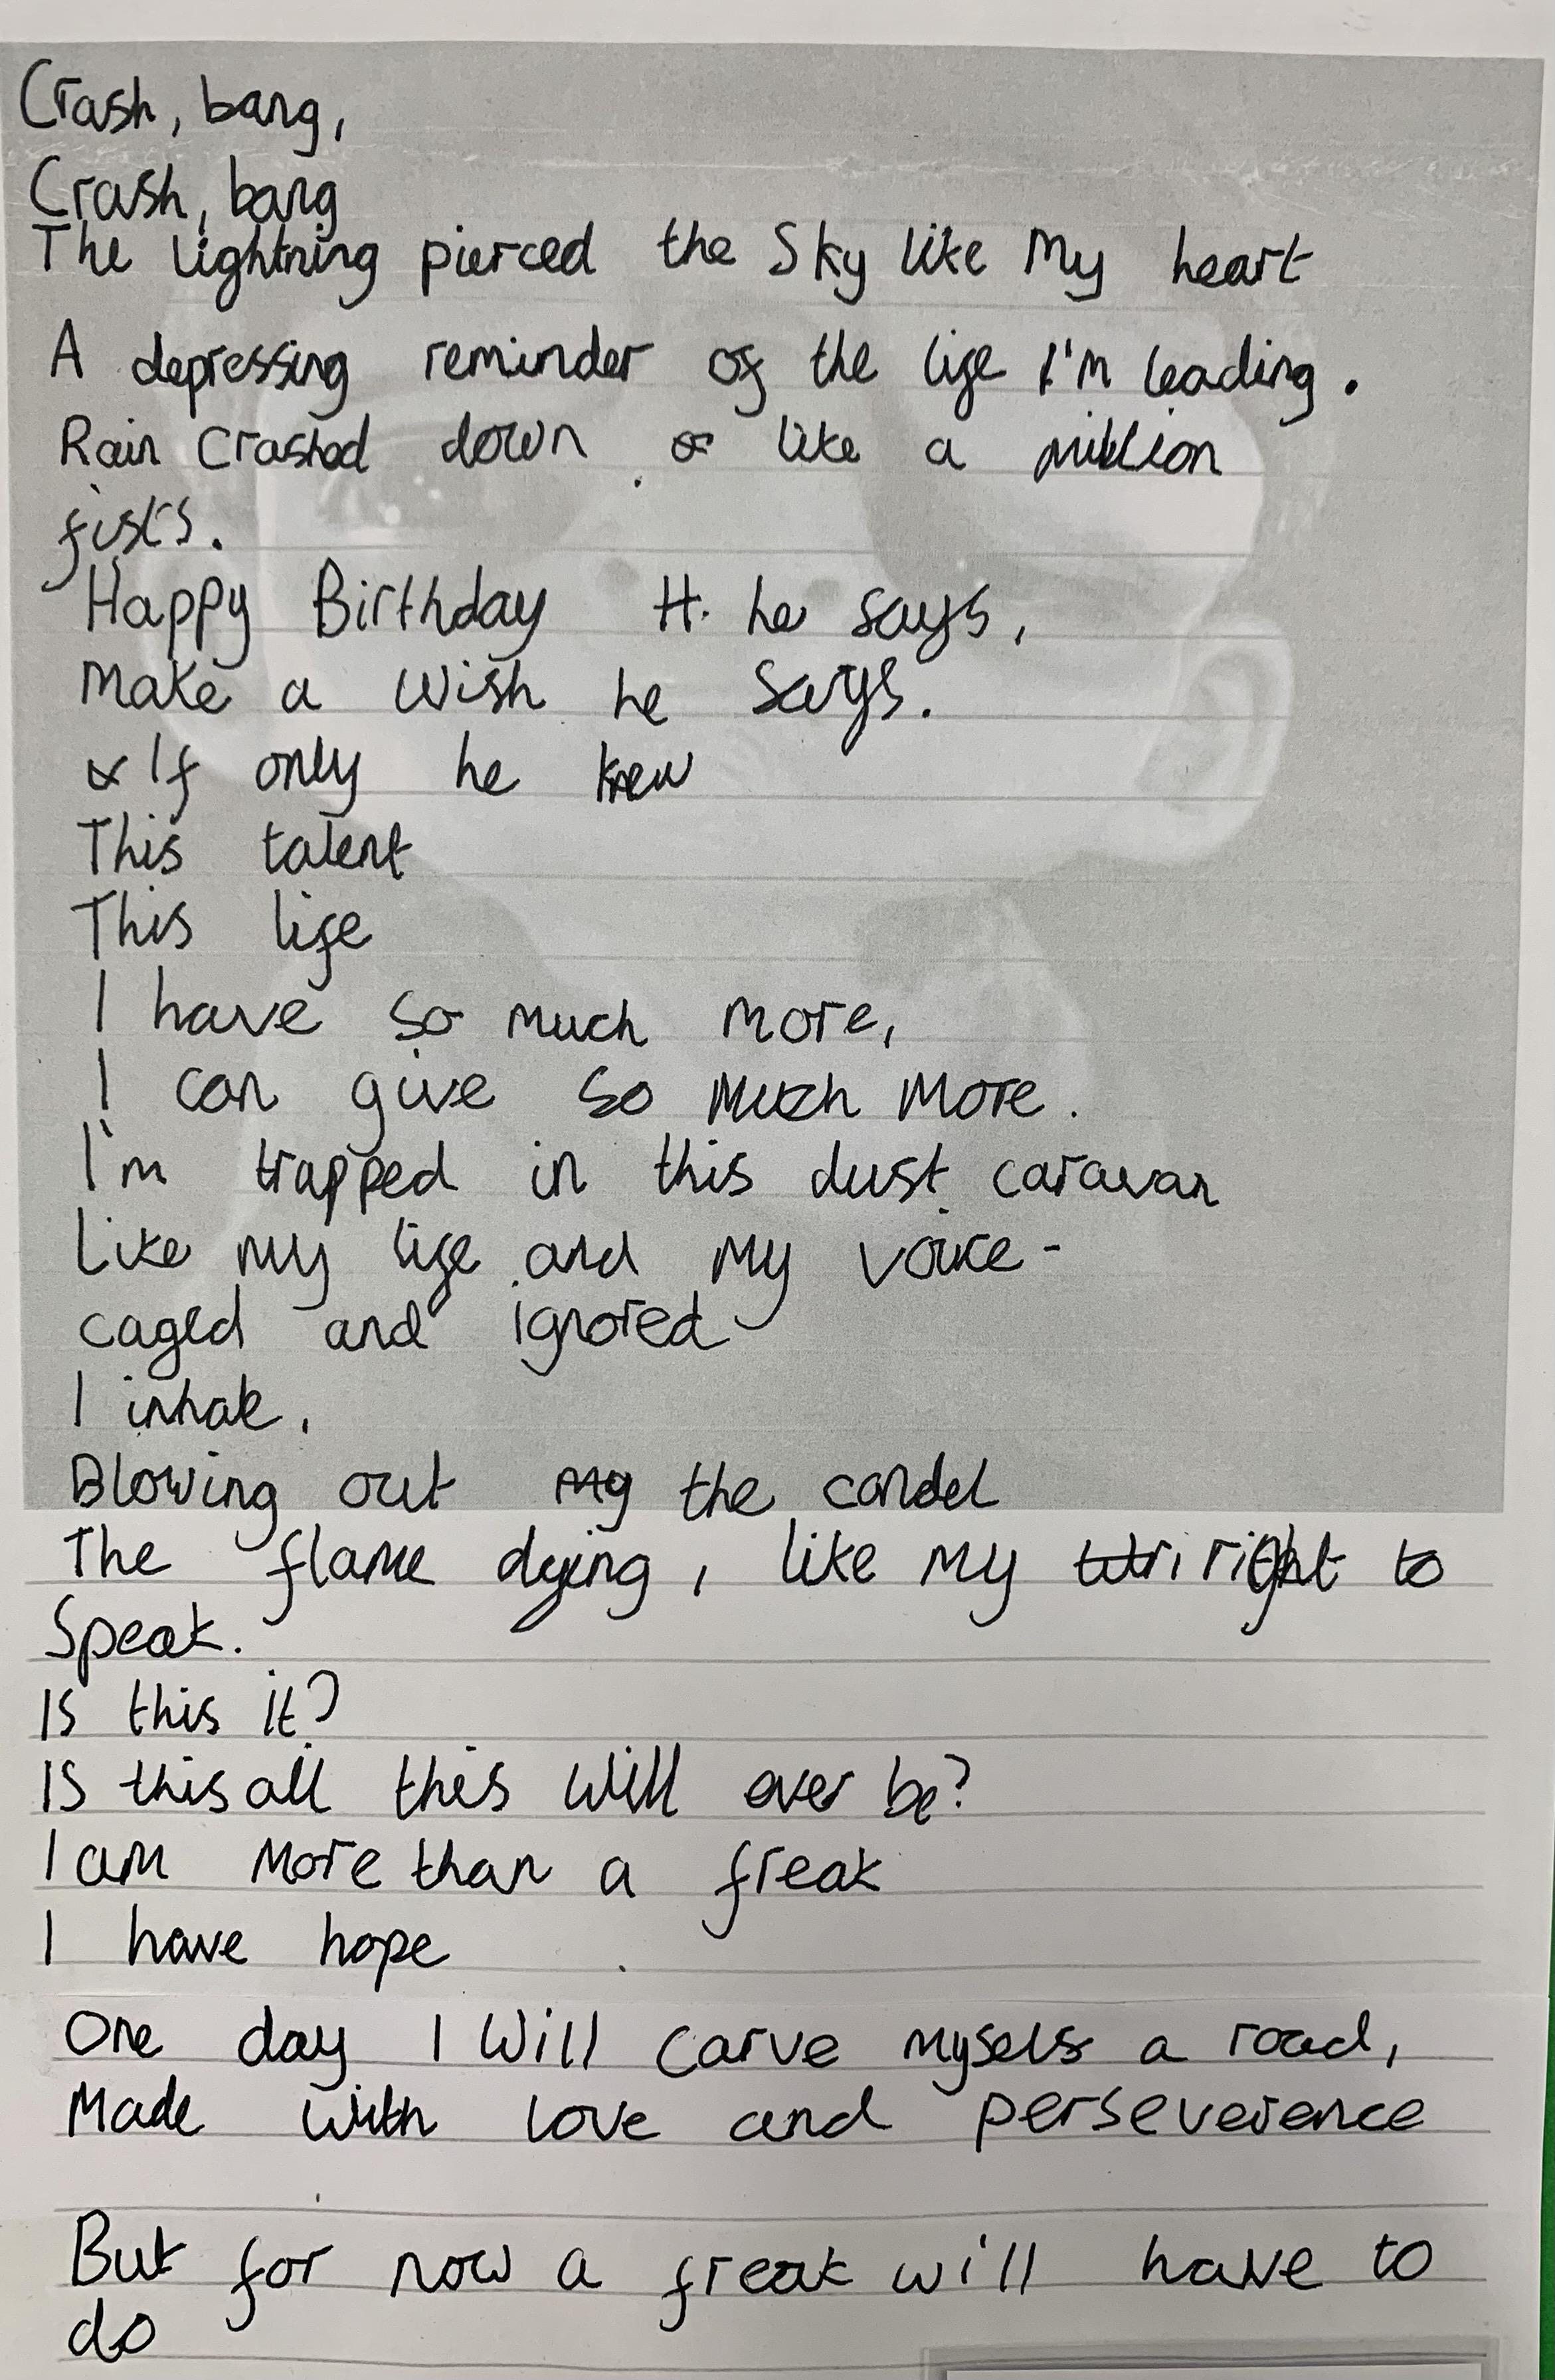 Crash, bang,
Crash, bang
The lightning pierced the Sky like My heart
A depressing reminder of the life I'm leading.
Rain Crashed down like a million
fists.
Happy Birthday H. he says,
Make a Wish he says.
If only he knew
This talent
This life
I have so much more,
I can give so much more.
I'm trapped in this dust caravan
Like my life and my voice -
caged and ignored
I inhale,
Blowing out my the candel
The flame dying, like my right to
Speak.
Is this it?
Is this all this will ever be?
I am more than a freak
I have hope
One day I Will carve myself a road,
Made with love and perseverence
But for now a freak will have to
do